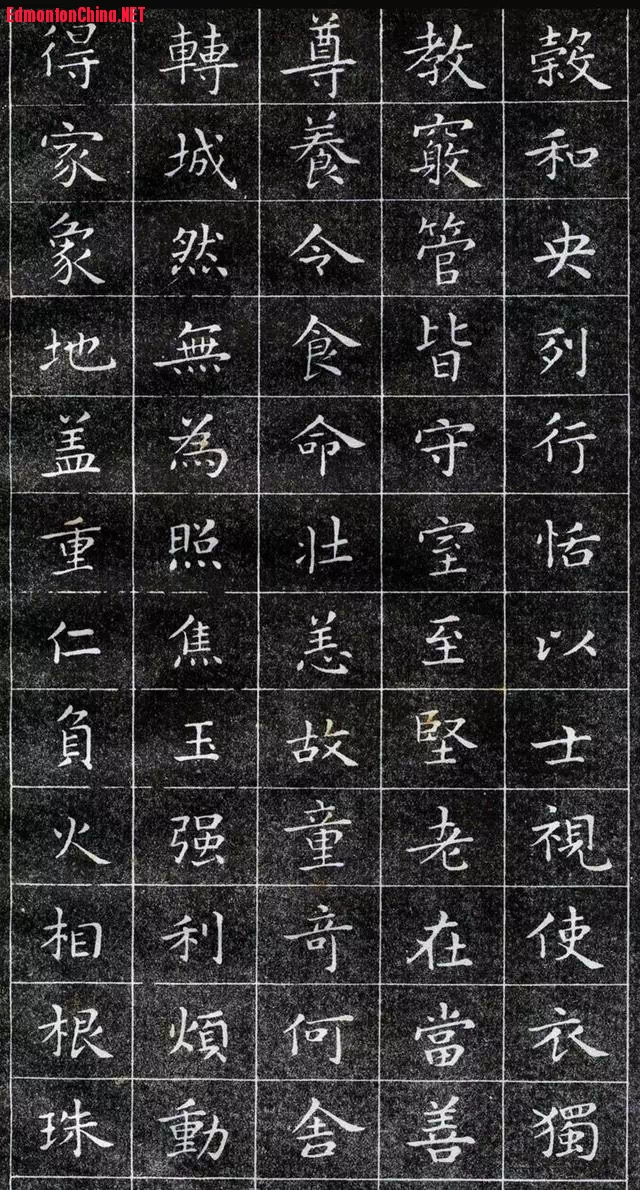 EdmontonChina.NET
穀和央列行恬以士視使衣獨
教窮管皆守室至堅老在當善
尊養令食命壮恙故童奇何舍
轉城然無為照焦玉强利煩動
得家象地盖重仁負火相根珠